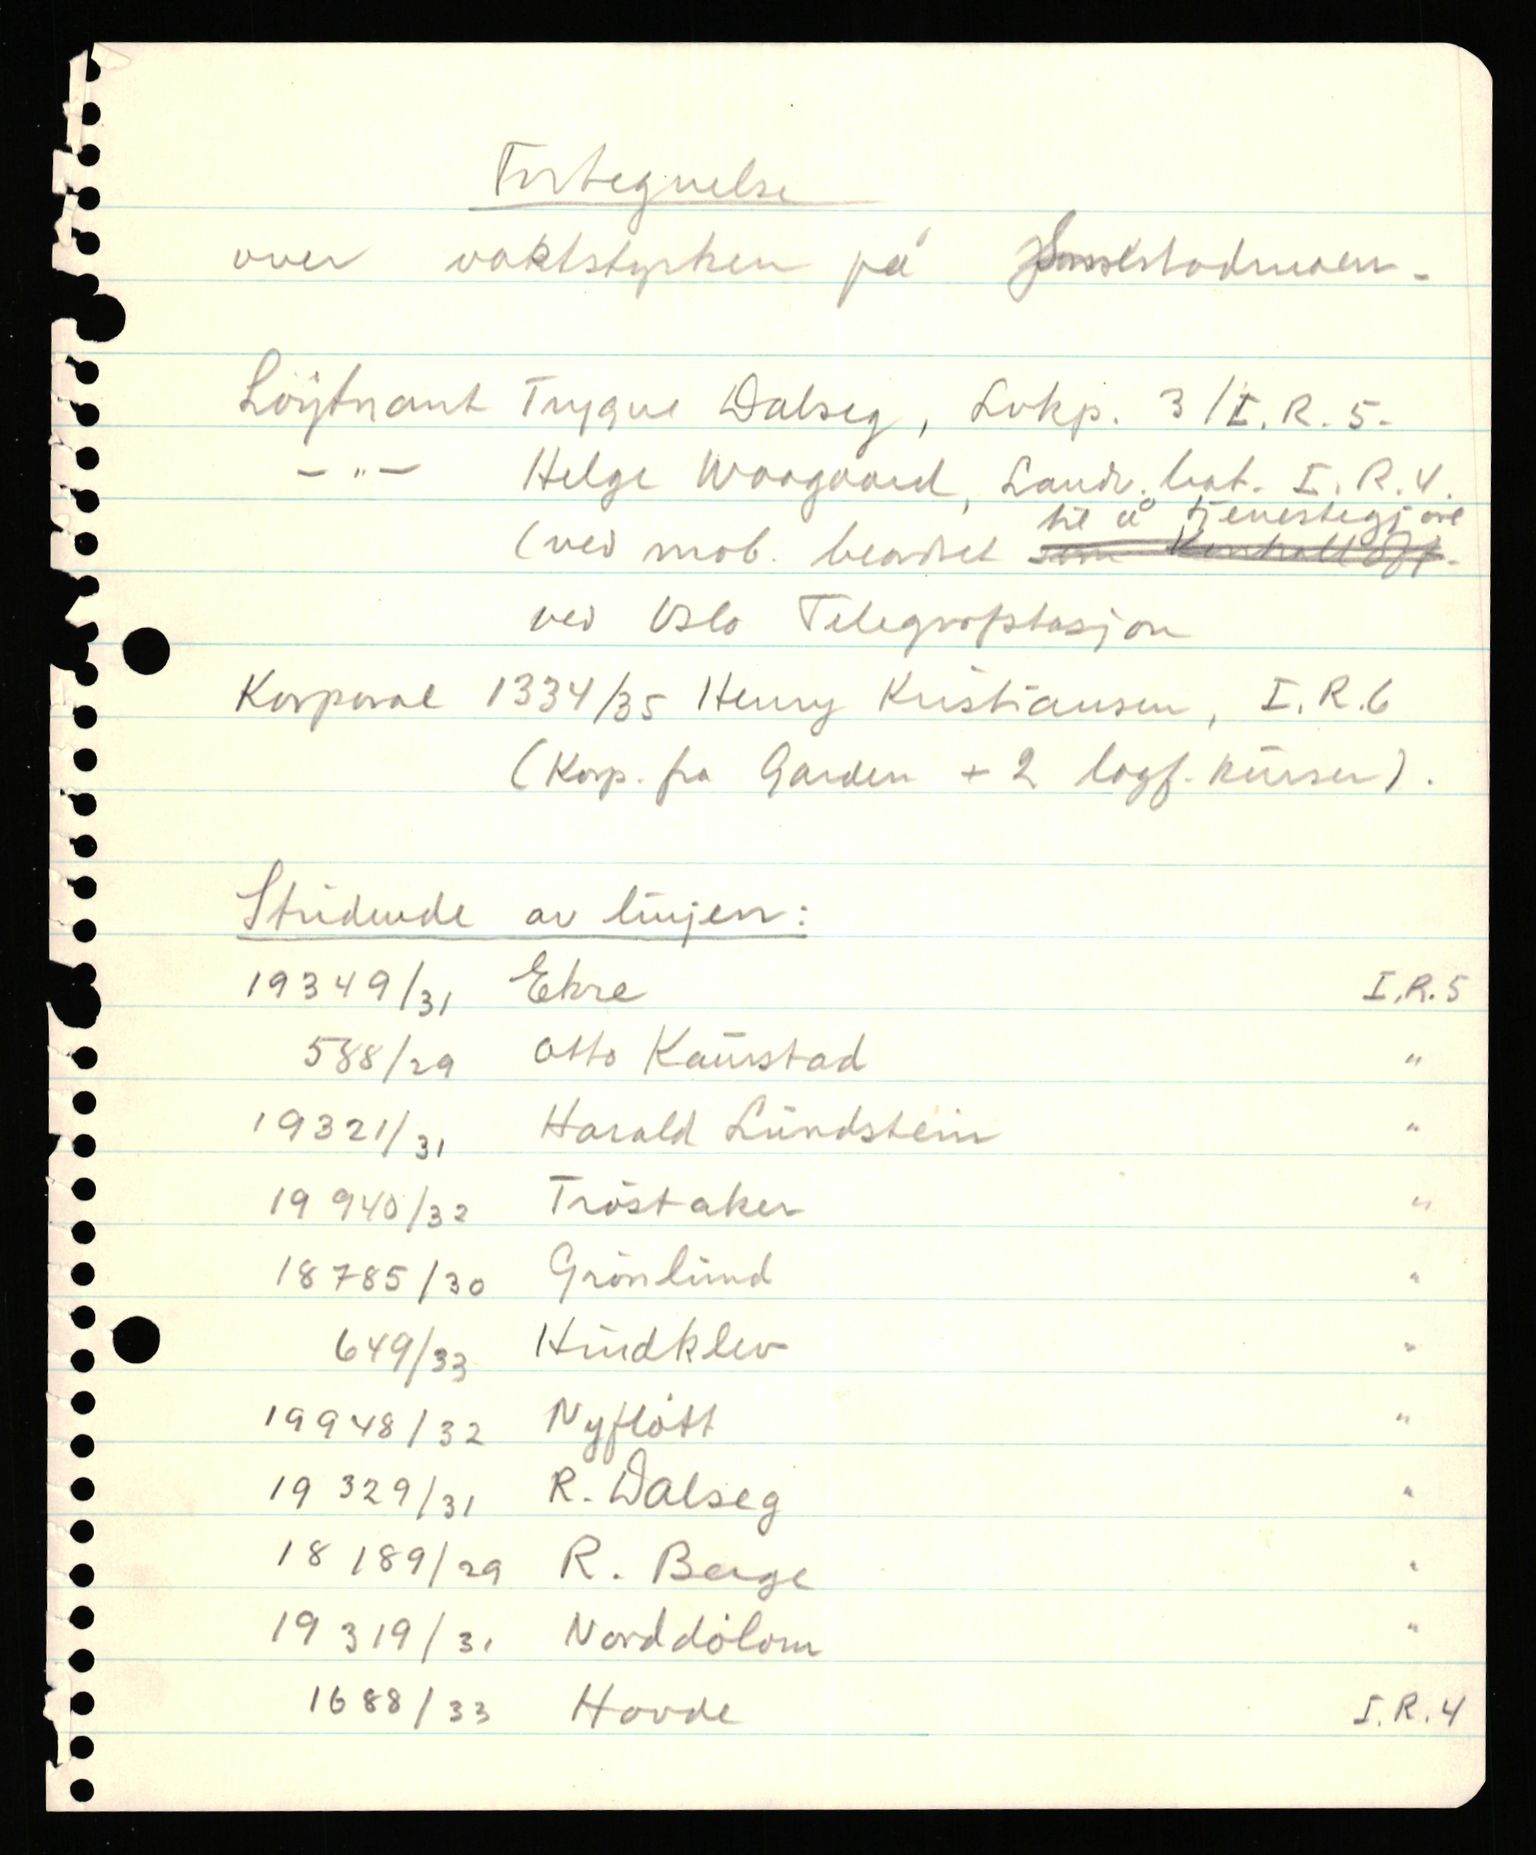 Fortegnelse
over vaktstyrken på Jonsrstadmoen.
Löytnant Trygve Dalseg, Lvkp. 3/I.R.5.
—"— Helge Waagaard, Landv.bat. I.R.4.
(ved mob. beordret til å tjenestegjøre
som Kontrolloff.
ved Oslo Telegrafstasjon
Korporal 1334/35 Henry Kristiansen, I.R.6
(Korp. fra Garden + 2 lagf. kurser).
Studende av linjen:
19349/31 Ekre I.R.5
588/29 Otto Kaurstad "
19321/31 Harald Lundstein "
19940/32 Tröstaker "
18785/30 Grönlund "
649/33 Hindklev "
19948/32 Nyflött "
19329/31 R. Dalseg "
18189/29 R. Berge "
19319/31 Norddölom "
1688/33 Hovde I.R.4